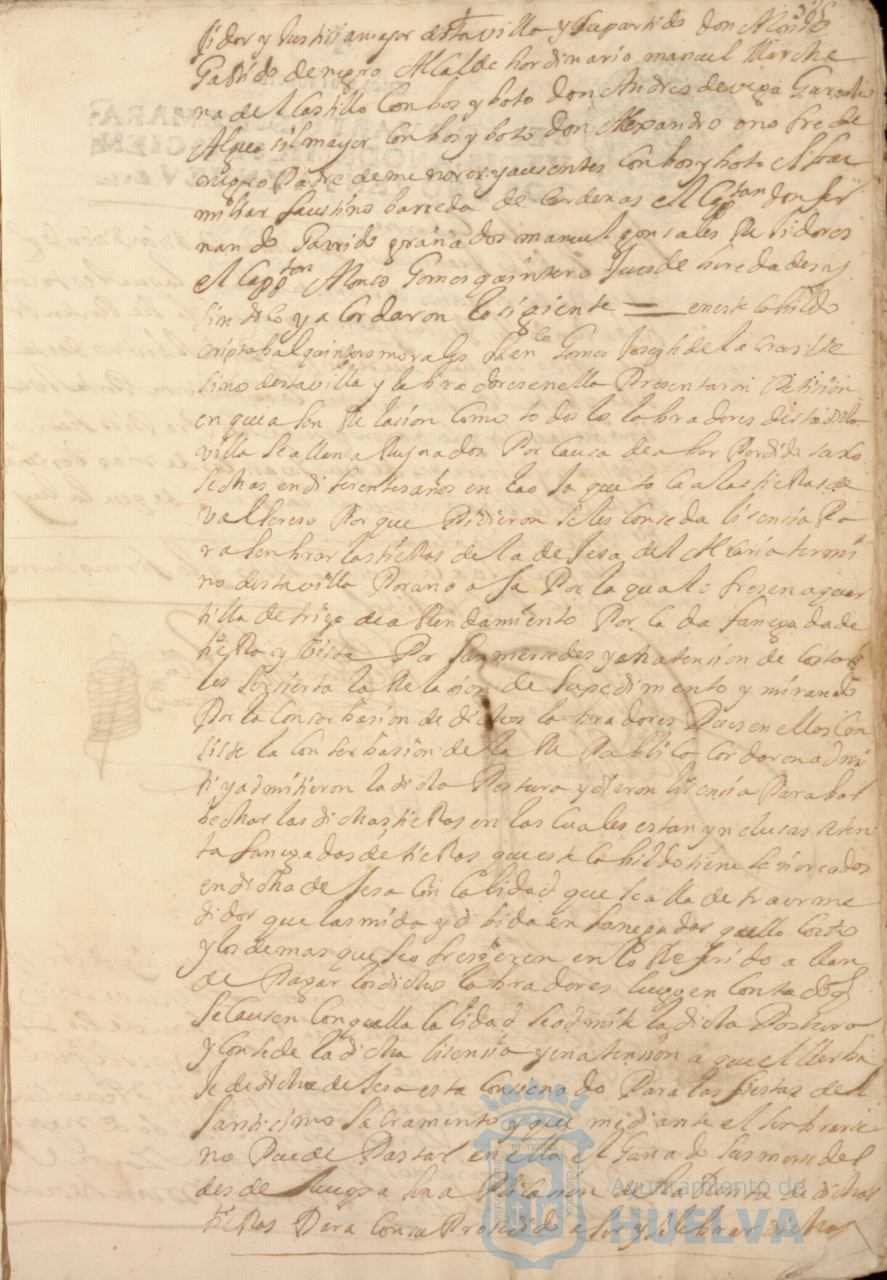 sidor y Justicia mayor desta villa y su partido don Alonso
Garrido de negro Alcalde hordinario manuel Marche
na del Castillo Con bos y boto don Andres de vega Garrucho
Alguasil mayor Con bos y boto don Alexandro onofre de
negro Padre de menores y ausentes Con bos y boto el fa
miliar faustino barreda de Cardenas el Capptan don fer
nando Garrido granados manuel gonsales Rexidores
el Cappton Alonso Gomes quintero Jues de heredades y
sindico y acordaron lo sigiente = en este Cabildo
criptobal quintero morales franco Gomes Joseph de la Cras Ve
sinos desta villa y labradores en ella Presentaron Petision
en que ason Relasion Como todos los labradores desta dicha
villa se allan aRuynados Por Causa de aber Perdido las co
sechas en diferentes años en lo que toca a las tieRas de
val Porque Pidieron se les Conseda lisensia Pa
ra senbrar las tieRas de la deJesa del termi
no desta villa Por año Por lo qual ofresen a quar
tilla de trigo de aRendamiento Por Cada fanegada de
tieRa y bista Por sus mersedes y en atension de Costar
les ser sierta la Relasion de su pedimento y mirando
Por la Conserbasion de dichos labradores Pues en ellos Con
siste la Conserbasion de la RePublica Acordaron admi
tir y admitieron la dicha Postura y dieron lisensia Para bar
bechar las dichas tieRas en las Cuales estan ynclusas seten
ta fanegadas de tieRas que este Cabildo tiene señoreados
en dicha deJesa Con Calidad que se alla de traer me
didor que las mida y dibida en fanegadas quello Costo
y los demas que se ofresieren en lo Referido allan
de Pagar los dichos labradores luego en Conta
se Causen Con quella Calidad se admite la dicha Postura
y Consede la dicha lisensia y en atension a que el Herba
Je de dicha deJesa esta Consinado Para las fiestas del
santicimo sacramento y que mediante el senbrarse
no Puede Pastar en ella el Ganado sus mersedes
desde luego asen aPlicasion de la Renta de dichas
tieRas Para Con su Prosedido aser y selebrar dichas
Ayuntamiento de
HUELVA